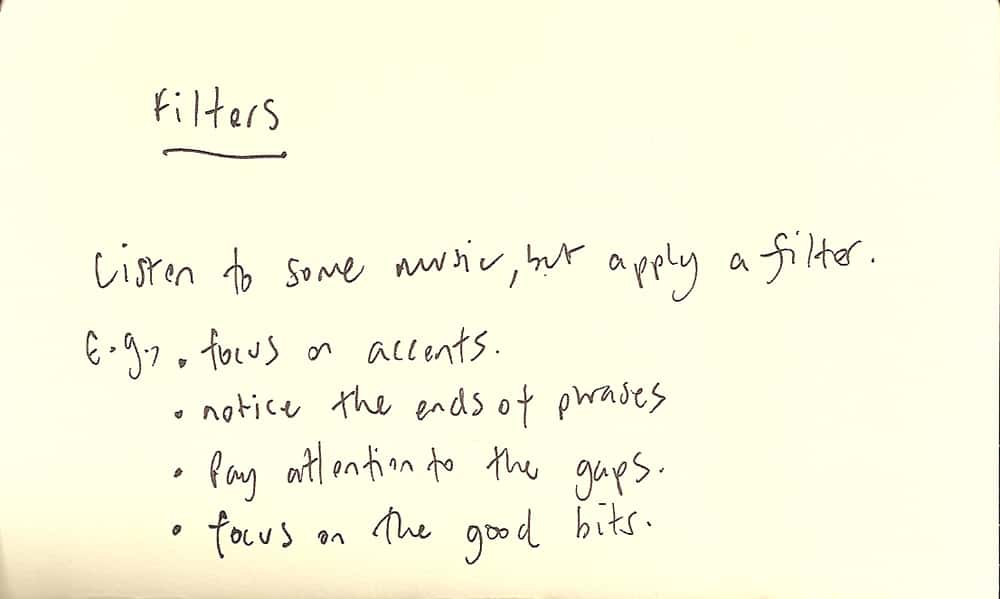 Filters
Listen to some music, but apply a filter.
E.g., • focus on accents.
• notice the ends of phrases
• Pay attention to the gaps.
• focus on the good bits.